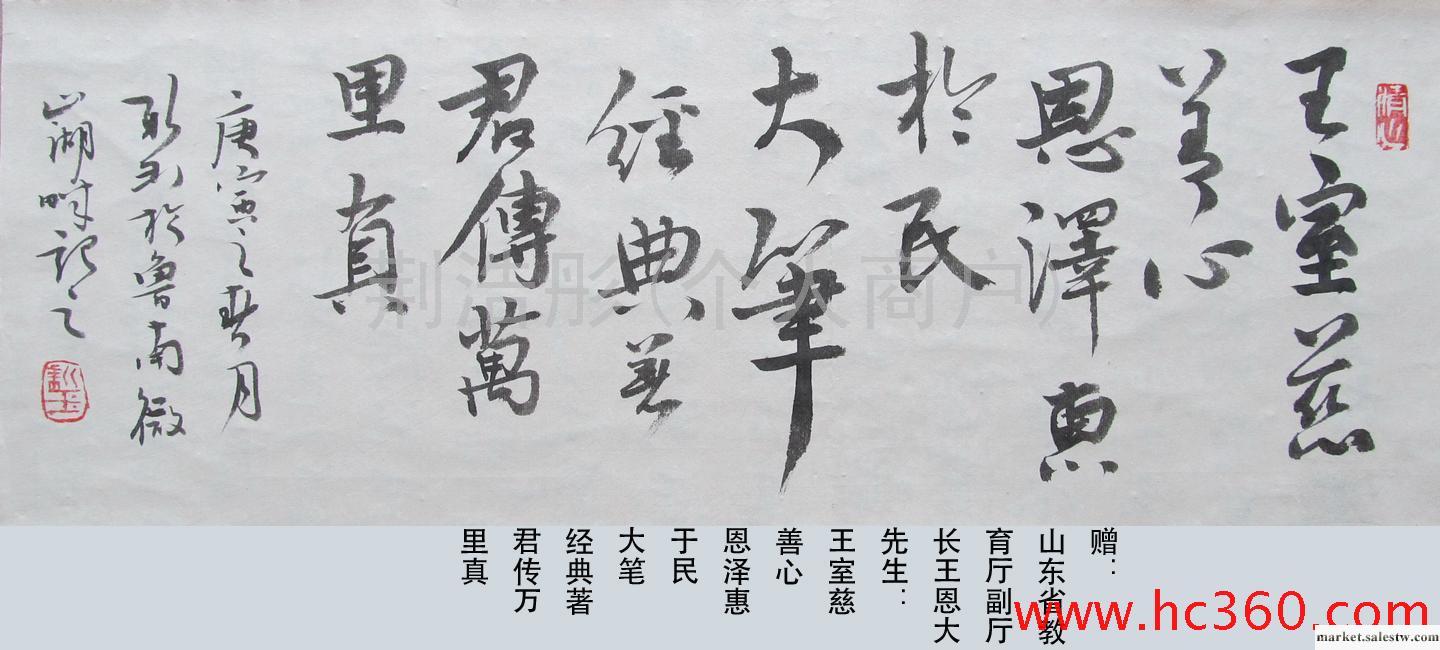 王室慈
善心
恩澤惠
於民
大筆
經典著
君傳萬
里真
庚寅之春月
於魯南微
山湖畔記之
荆浩彤(个人商户)
赠：
山东省教
育厅副厅
长王恩大
先生：
王室慈
善心
恩泽惠
于民
大笔
经典著
君传万
里真
www.hc360.com
market.salestw.com